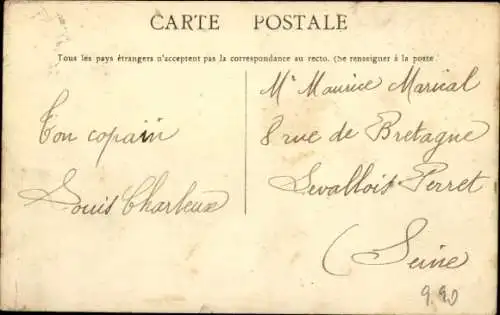 CARTE POSTALE
Tous les pays étrangers n'acceptent pas la correspondance au recto. (Se renseigner à la poste
Ton copain
Louis Charleux
Mr Maurice Marical
8 rue de Bretagne
Levallois Perret
(Seine
9.90